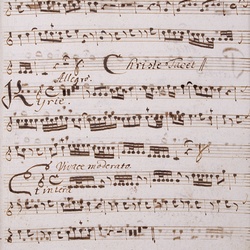 Christe Tacet ||
Allegro.
Kyrie.
Vivace moderato
Et in terra